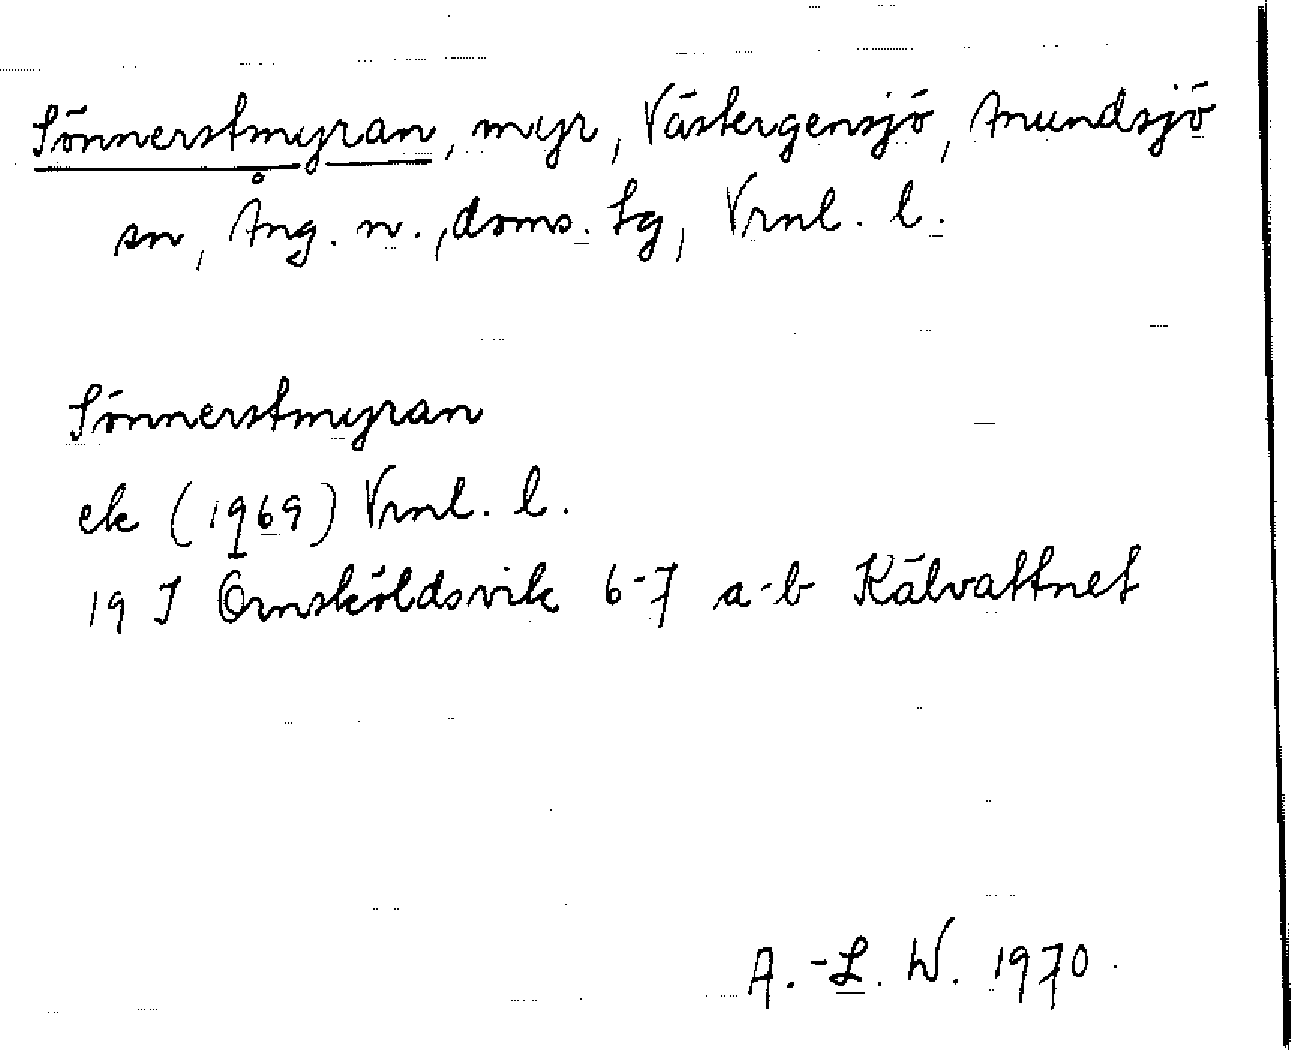 Sönnerstmyran, myr, Västergensjö, Anundsjö
sn, Ång. n., doms. lg, Vrnl. l.
Sönnerstmyran
ek (1969) Vrnl. l.
19 J Örnsköldsvik 6-7 a-b Kälvattnet
A.-L. W. 1970.